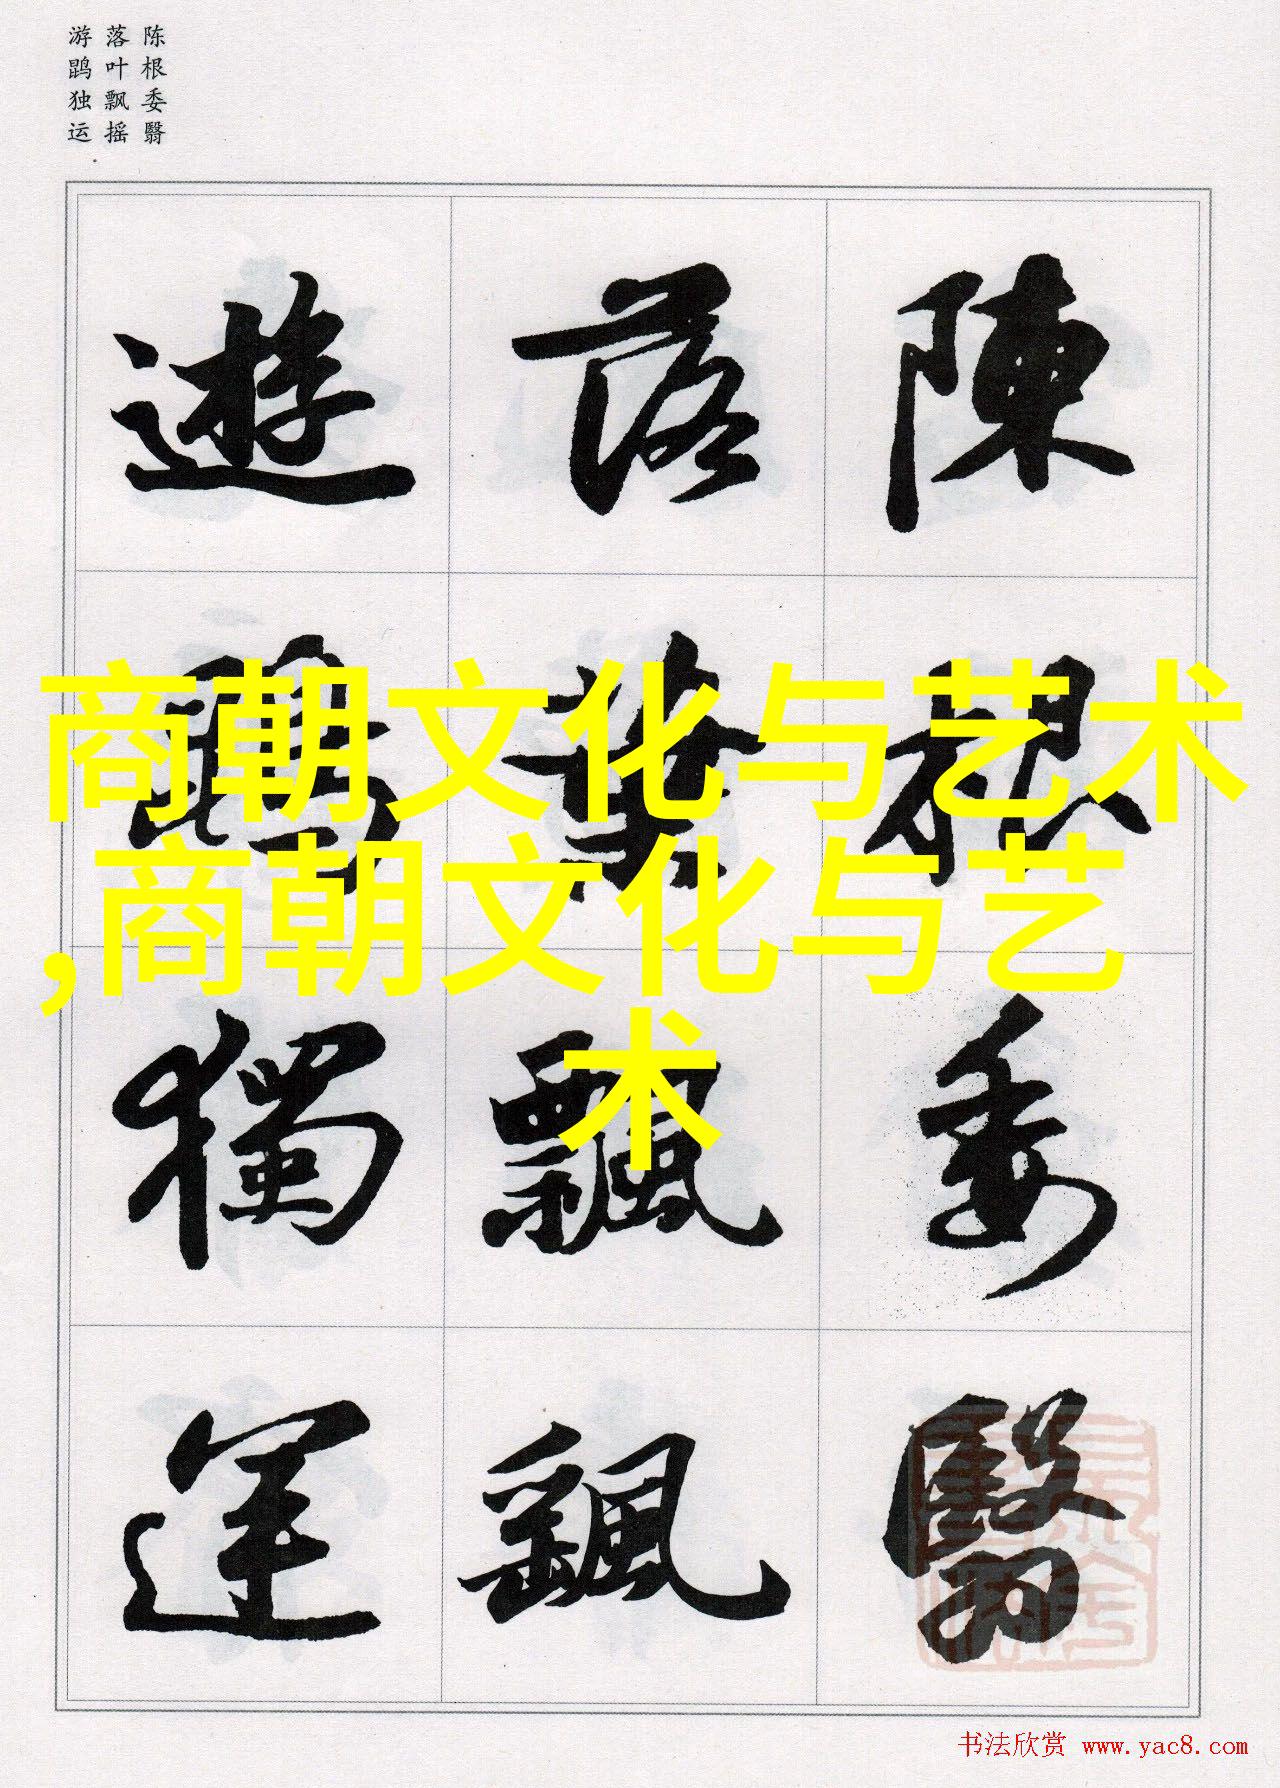 陈根委翳
落叶飘摇
游鹍独运
陳根委翳
落葉飄颻
遊鵾獨運
商朝文化与艺术
,商朝文化与艺
术
书法欣赏 www.yac8.com